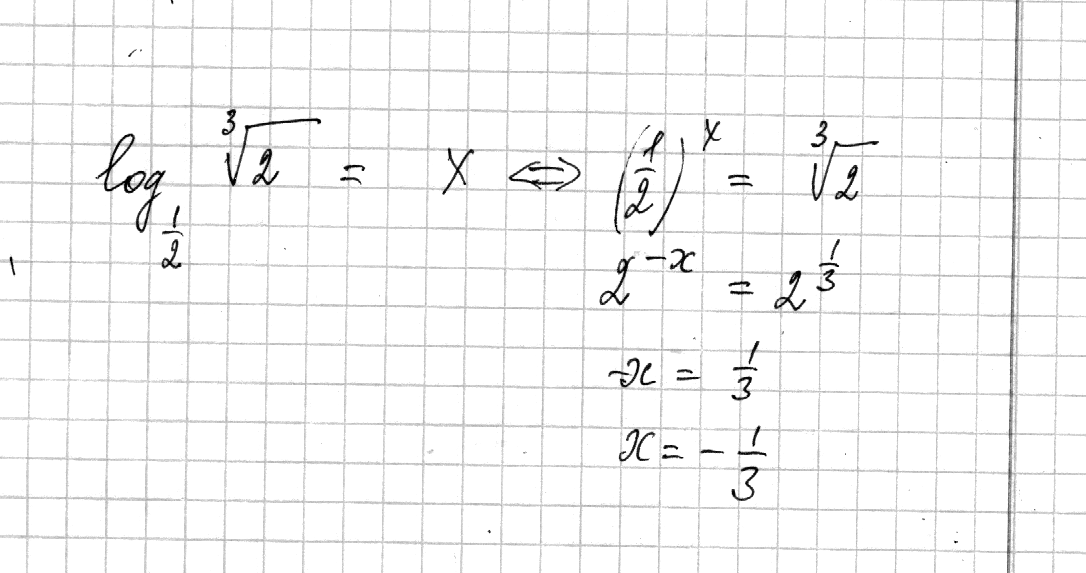 log_{1/2} ∛2 = x ⇔ (1/2)^x = ∛2
2^{-x} = 2^{1/3}
-x = 1/3
x = -1/3